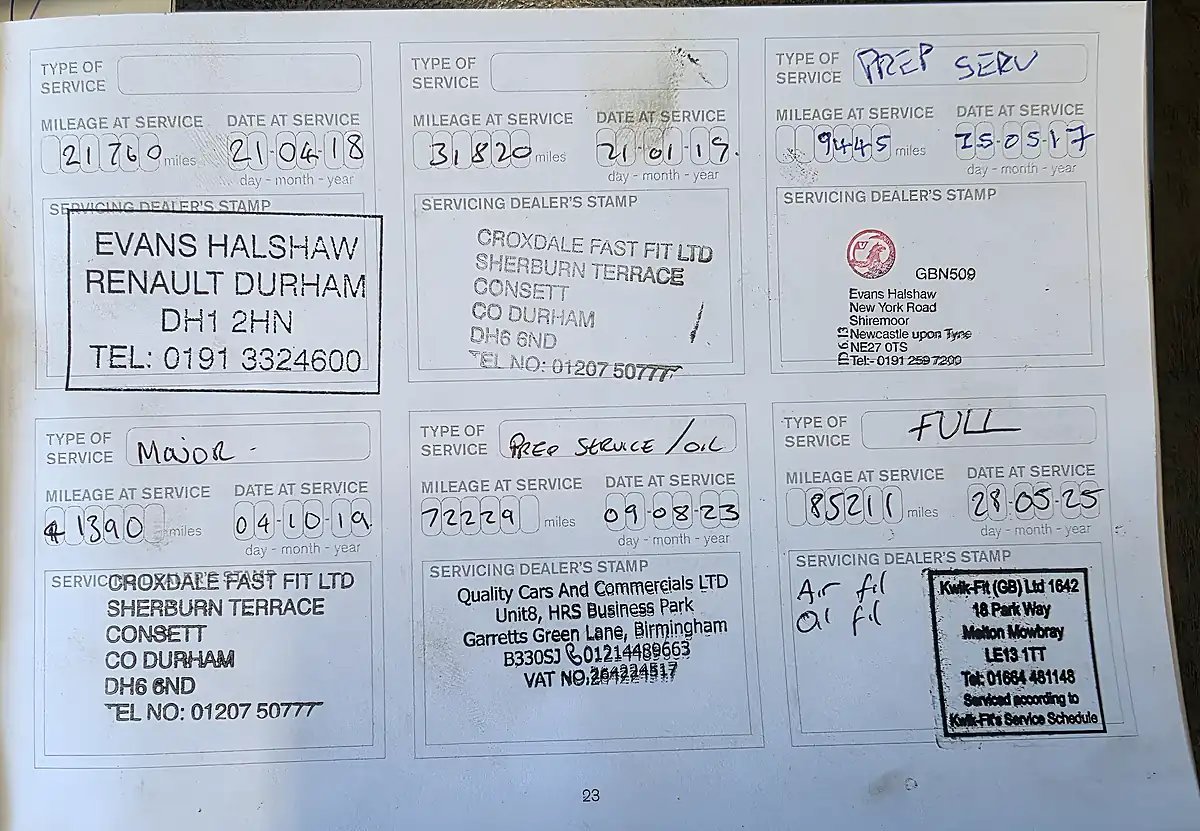 TYPE OF
SERVICE
MILEAGE AT SERVICE DATE AT SERVICE
21760 miles 21-04-18
day - month - year
SERVICING DEALER'S STAMP
EVANS HALSHAW
RENAULT DURHAM
DH1 2HN
TEL: 0191 3324600
TYPE OF
SERVICE
MILEAGE AT SERVICE DATE AT SERVICE
31820 miles 21-01-19.
day - month - year
SERVICING DEALER'S STAMP
CROXDALE FAST FIT LTD
SHERBURN TERRACE
CONSETT
CO DURHAM
DH6 6ND
TEL NO: 01207 50777
TYPE OF
SERVICE PREP SERV
MILEAGE AT SERVICE DATE AT SERVICE
9445 miles 15-05-17
day - month - year
SERVICING DEALER'S STAMP
GBN509
Evans Halshaw
New York Road
Shiremoor
Newcastle upon Tyne
NE27 0TS
Tel:- 0191 259 7200
TYPE OF
SERVICE MAJOR -
MILEAGE AT SERVICE DATE AT SERVICE
41390 miles 04-10-19.
day - month - year
SERVICING DEALER'S STAMP
CROXDALE FAST FIT LTD
SHERBURN TERRACE
CONSETT
CO DURHAM
DH6 6ND
TEL NO: 01207 50777
TYPE OF
SERVICE PREP SERVICE / OIL
MILEAGE AT SERVICE DATE AT SERVICE
72229 miles 09-08-23
day - month - year
SERVICING DEALER'S STAMP
Quality Cars And Commercials LTD
Unit8, HRS Business Park
Garretts Green Lane, Birmingham
B330SJ 01214489663
VAT NO.264224517
TYPE OF
SERVICE FULL
MILEAGE AT SERVICE DATE AT SERVICE
85211 miles 28-05-25
day - month - year
SERVICING DEALER'S STAMP
Air fil
Oil fil
Kwik-Fit (GB) Ltd 1642
18 Park Way
Melton Mowbray
LE13 1TT
Tel: 01664 481148
Serviced according to
Kwik-Fit's Service Schedule
23